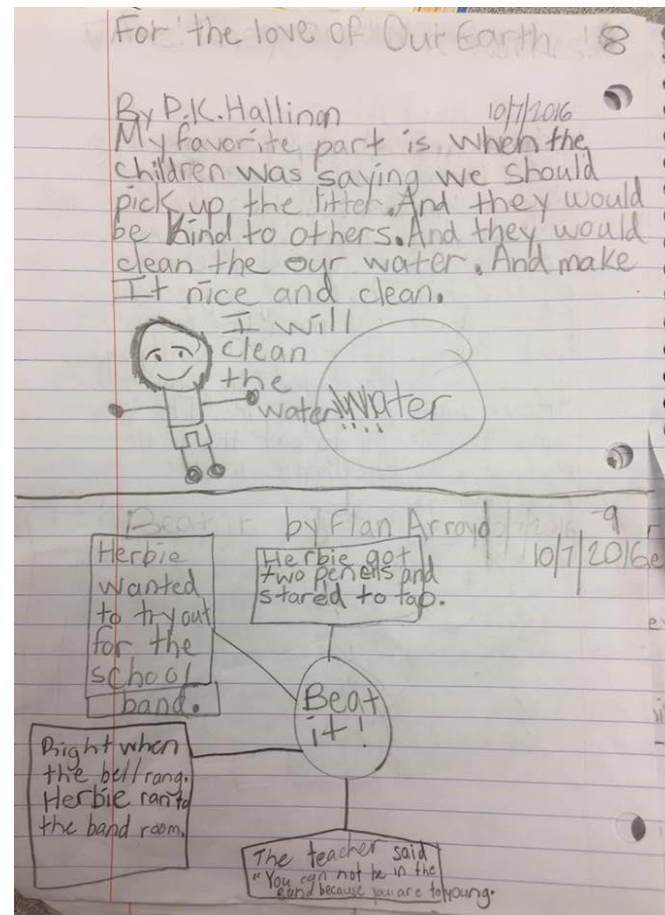 For the love of Our Earth 8
By P.K. Hallinan 10/7/2016
My favorite part is when the
children was saying we should
pick up the litter. And they would
be kind to others. And they would
clean the our water. And make
It nice and clean.
I will
clean
the
water
Water
Beat it by Flan Arroyo 9
10/7/2016
Herbie
wanted
to try out
for the
school
band.
Herbie got
two pencils and
stared to tap.
Beat
it!
Right when
the bell rang.
Herbie ran to
the band room.
The teacher said
"You can not be in the
band because you are to young.